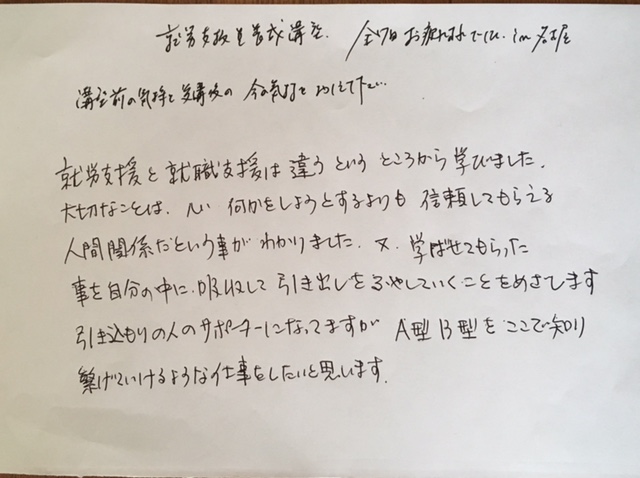 就労支援員養成講座. 全7日 お疲れさまでした. in 名古屋
講座前の気持と受講後の 今の気持を 教えて下さい.
就労支援と就職支援は違うという ところから学びました.
大切なことは、 何かをしようとするよりも 信頼してもらえる
人間関係だという事が わかりました. 又. 学ばせてもらった
事を自分の中に 吸収して 引き出しをふやしていくことをめざします
引き込もりの人のサポーターになってますが A型 B型を ここで知り
繋げていけるような仕事をしたいと思います.